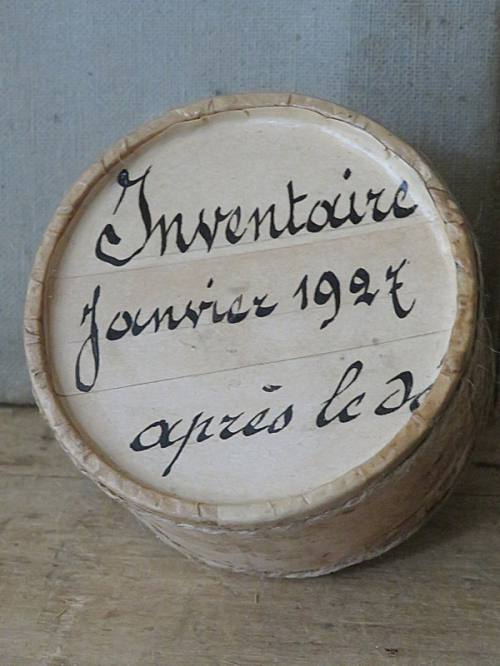 Inventaire
Janvier 1927
après le